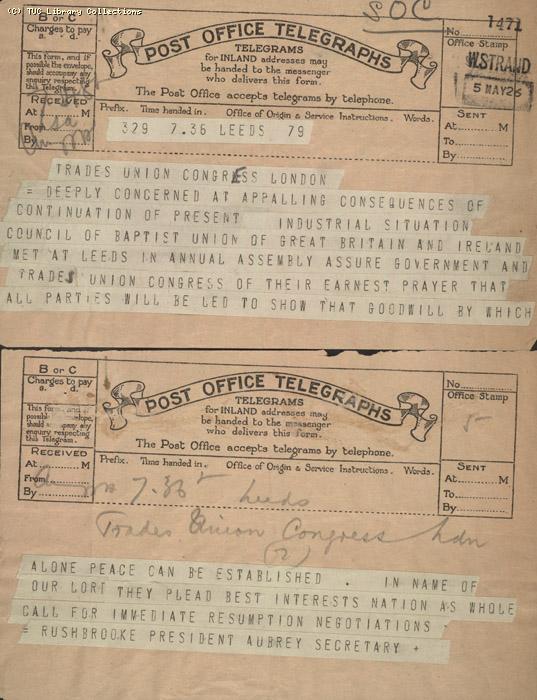 © TUC Library Collections
SOC
1471
B or C
Charges to pay
s. d.
This form, and if
possible the envelope,
should accompany any
enquiry respecting
this Telegram.
RECEIVED
At M
From
By
POST OFFICE TELEGRAPHS
TELEGRAMS
for INLAND addresses may
be handed to the messenger
who delivers this form.
The Post Office accepts telegrams by telephone.
Prefix. Time handed in. Office of Origin & Service Instructions. Words.
No.
Office Stamp
W.STRAND
5 MAY 26
SENT
At M
To
By
329 7.36 LEEDS 79
TRADES UNION CONGRESS LONDON
= DEEPLY CONCERNED AT APPALLING CONSEQUENCES OF
CONTINUATION OF PRESENT INDUSTRIAL SITUATION
COUNCIL OF BAPTIST UNION OF GREAT BRITAIN AND IRELAND
MET AT LEEDS IN ANNUAL ASSEMBLY ASSURE GOVERNMENT AND
TRADES UNION CONGRESS OF THEIR EARNEST PRAYER THAT
ALL PARTIES WILL BE LED TO SHOW THAT GOODWILL BY WHICH
B or C
Charges to pay
s. d.
This form, and if
possible envelope,
should accompany any
enquiry respecting
this Telegram.
RECEIVED
At M
From
By
POST OFFICE TELEGRAPHS
TELEGRAMS
for INLAND addresses may
be handed to the messenger
who delivers this form.
The Post Office accepts telegrams by telephone.
Prefix. Time handed in. Office of Origin & Service Instructions. Words.
No.
Office Stamp
SENT
At M
To
By
7.36 Leeds
Trades Union Congress Ldn
(2)
ALONE PEACE CAN BE ESTABLISHED . IN NAME OF
OUR LORD THEY PLEAD BEST INTERESTS NATION AS WHOLE
CALL FOR IMMEDIATE RESUMPTION NEGOTIATIONS -
= RUSHBROOKE PRESIDENT AUBREY SECRETARY +